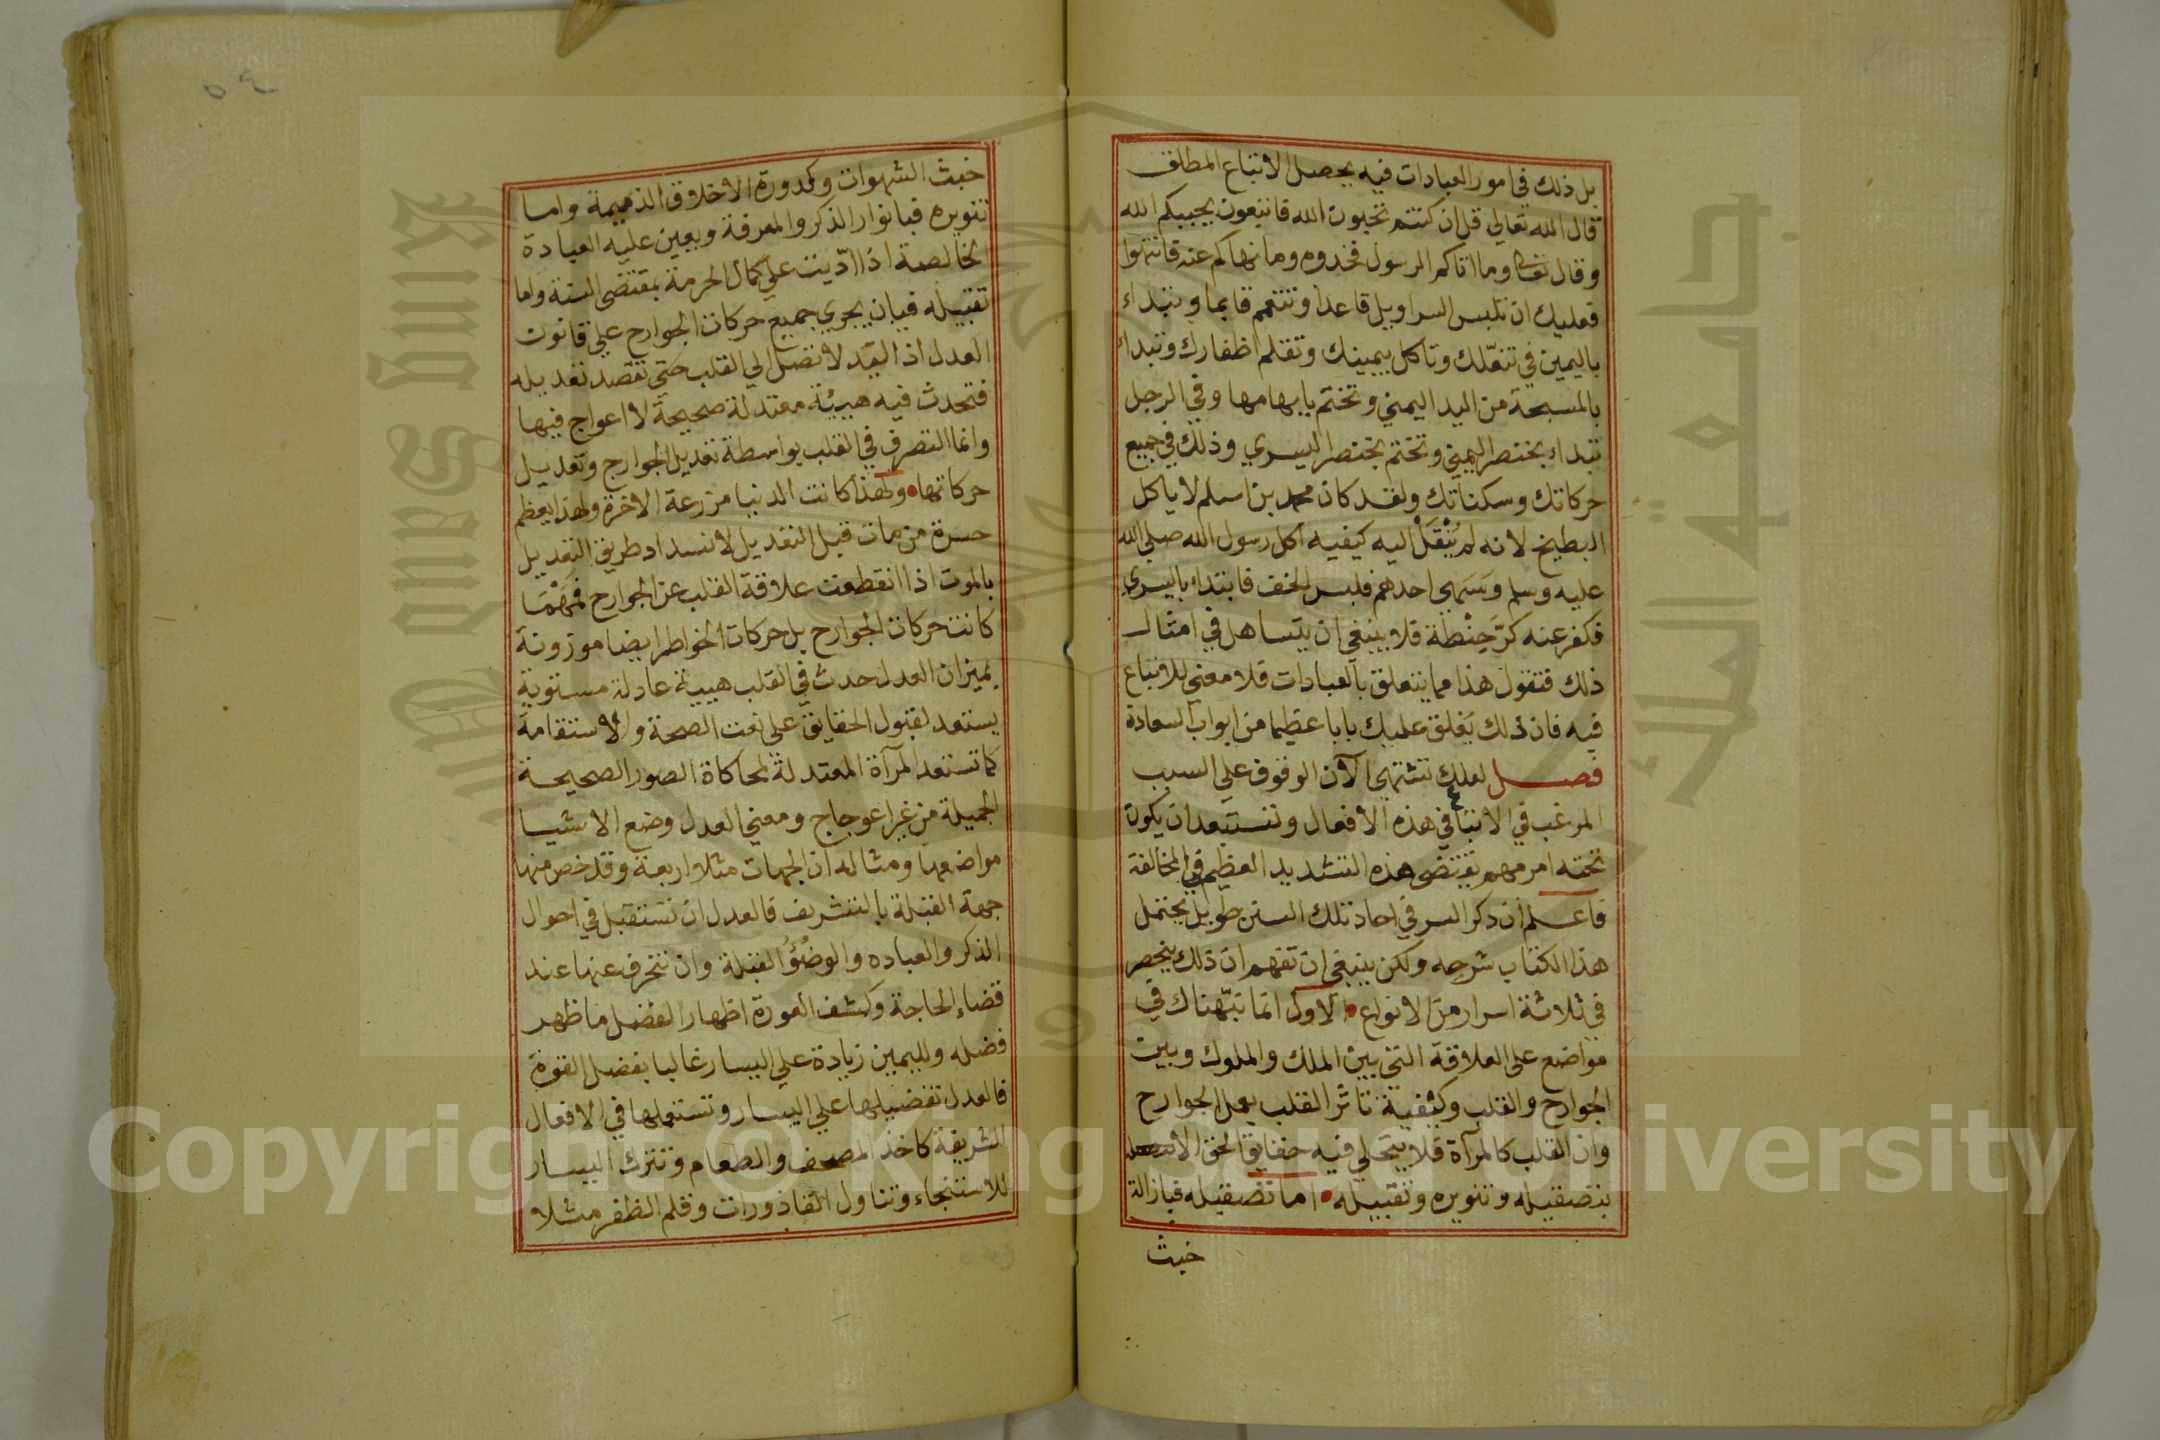 بل ذلك في امور العبادات فيه يحصل الاتباع المطلق
قال الله تعالى قل ان كنتم تحبون الله فاتبعون يحببكم الله
وقال تعالى وما اتاكم الرسول فخدوه وما نهاكم عنه فانتهوا
فعليك ان تلبس السراويل قاعدا وتتعمم قايما وتبتداء
باليمين في تنعّلك وتاكل بيمينك وتقلم اظفارك وتبداء
بالمسبحة من اليد اليمني وتختم بابهامها وفي الرجل
تبداء بخنصر اليمني وتختم بخنصر اليسري وذلك في جميع
حركاتك وسكناتك ولقد كان محمد بن اسلم لا ياكل
البطيخ لانه لم يُنْقَلْ اليه كيفيه اكل رسول الله صلى الله
عليه وسلم وسَهى احدهم فلبس الخف فابتداء باليسري
فكفر عنه كرَّ حِنْطة فلا ينبغي ان يتساهل في امثال
ذلك فتقول هذا مما يتعلق بالعبادات فلا معنى للاتباع
فيه فان ذلك يغلق عليك بابا عظيما من ابواب السعادة
فصل لعلك تشتهي الآن الوقوف علي السبب
المرغب في الاتباع في هذه الافعال وتستبعد ان يكون
تحته امر مهم يقتضى هذه التشديد العظيم في المخالفة
فاعلم ان دكر السر في احاد تلك السنن طويل يحتمل
هذا الكتاب شرحه ولكن ينبغي ان تفهم ان ذلك ينحصر
في ثلاثة اسرار من الانواع الاول انا نبّهناك في
مواضع على العلاقة التي بين الملك والملوك وبين
الجوارح والقلب وكيفية تاثر القلب بعمل الجوارح
وان القلب كالمرآة فلا يتجلي فيه حقايق الحق الا
بتصقيله وتنويره وتقبيله اما تصقيله فبازالة
خبث
٥٤
خبث الشهوات وكدورة الاخلاق الذميمة واما
تنويره فبانوار الذكر والمعرفة ويعين عليه العبادة
الخالصة اذا ادّيت علي كمال الحرمة بمقتضى السنة واما
تقبيله فبان يجري جميع حركات الجوارح على قانون
العدل اذ اليد لا تصل الي القلب حتى تقصد تعديله
فتحدث فيه هيئة معتدلة صحيحة لا اعواج فيها
وانما التصرف في القلب بواسطة تعديل الجوارح وتعديل
حركاتها ولهذا كانت الدنيا مزرعة الاخرة ولهذا يعظم
حسرة من مات قبل التعديل لانسداد طريق التعديل
بالموت اذا انقطعت علاقة القلب عن الجوارح فمَهْمَا
كانت حركات الجوارح بل حركات الخواطر ايضا موزونة
بميزان العدل حدث في القلب هيية عادلة مستوية
يستعد لقبول الحقايق على نعت الصحة والاستقامة
كما تستعد المرآة المعتدلة لمحاكاة الصور الصحيحة
الجميلة من غير اعوجاج ومعني العدل وضع الاشيا
مواضعها ومثاله ان الجهات مثلا اربعة وقد خص منها
جهة القبلة بالتشريف فالعدل ان تستقبل في احوال
الذكر والعباده والوضُوُ القبلة وان تنحرف عنها عند
قضاء الحاجة وكشف العورة اظهار الفضل ما ظهر
فضله ولليمين زيادة علي اليسار غالبا بفضل القوة
فالعدل تفضيلها علي اليسار وتستعملها في الافعال
الشريفة كاخذ المصحف والطعام وتترك اليسار
للاستنجاء وتناول القاذورات وقلم الظفر مثلا
جامعة الملك سعود
King Saud University
Copyright © King Saud University